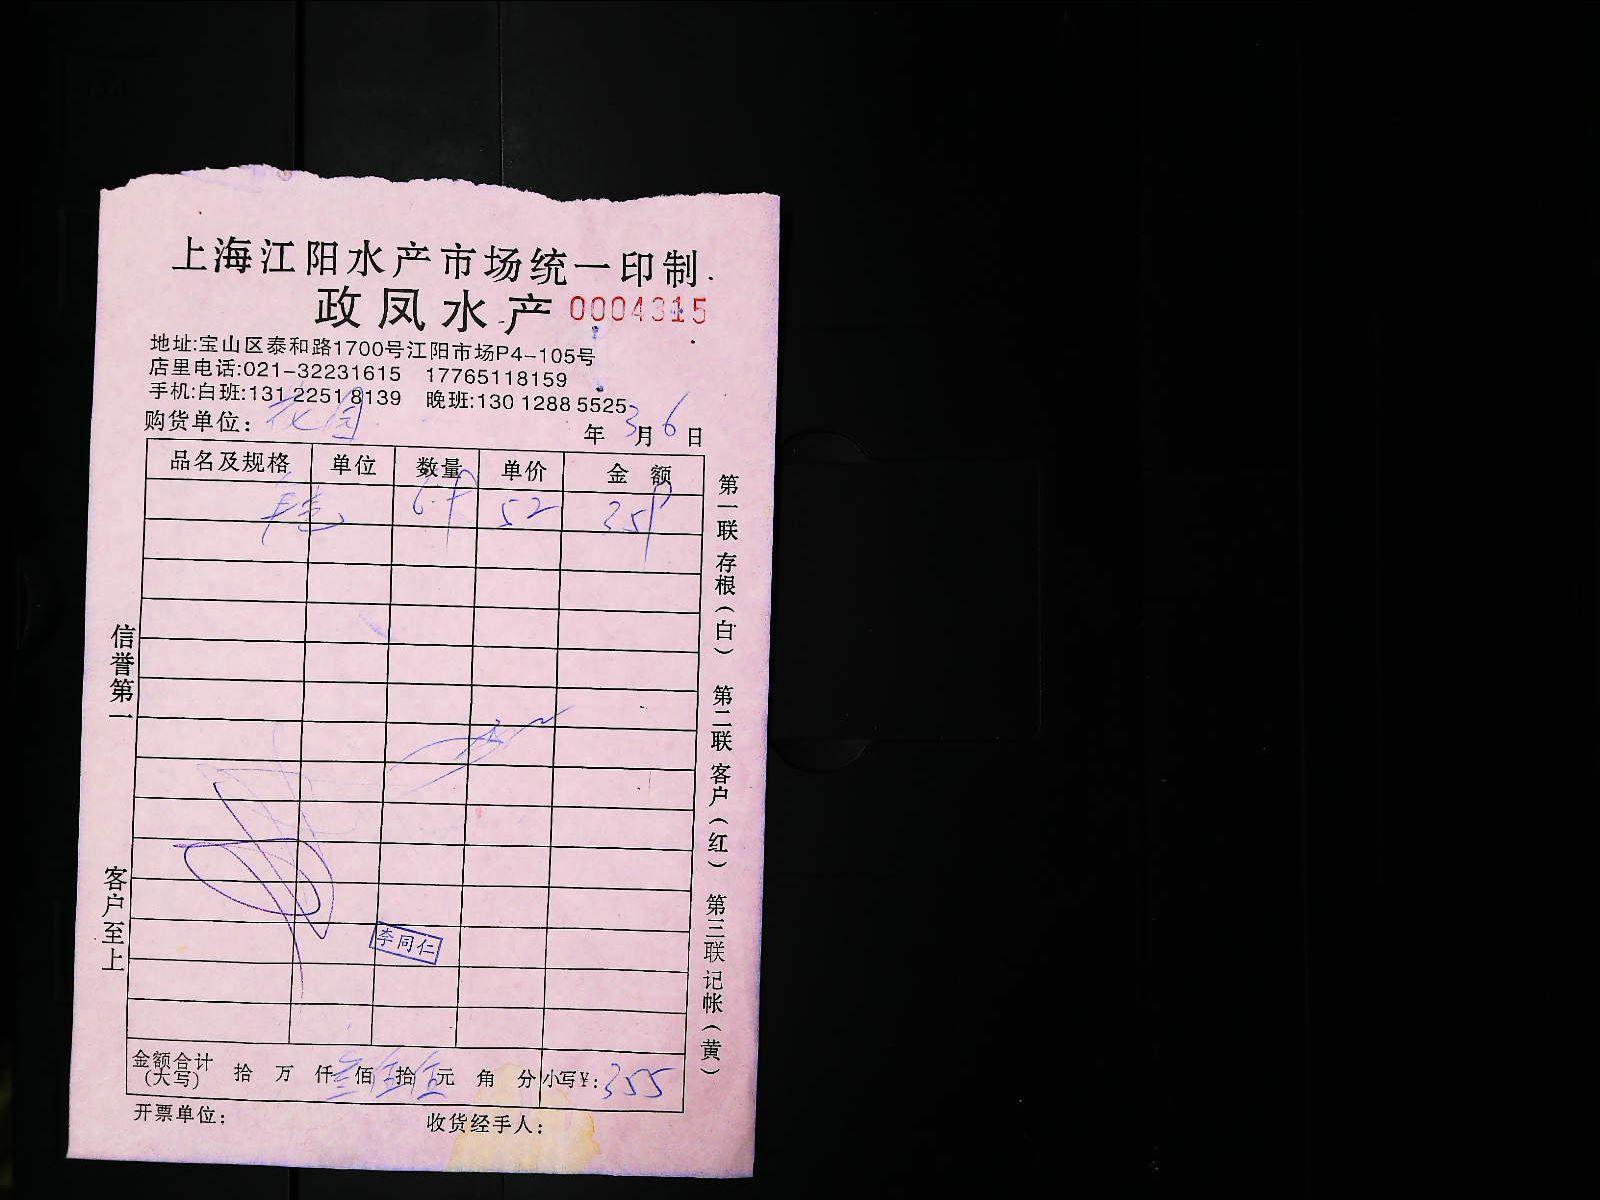 上海江阳水产市场统一印制
政凤水产 0004315
地址:宝山区泰和路1700号江阳市场P4-105号
店里电话:021-32231615 17765118159
手机:白班:131 2251 8139 晚班:130 1288 5525
购货单位: 花园
年 3月 6日
品名及规格 单位 数量 单价 金额
52
金额合计(大写) 拾 万 仟叁佰伍拾伍元 角 分 小写¥:355
开票单位: 收货经手人:
李同仁
信誉第一
客户至上
第一联 存根(白) 第二联 客户(红) 第三联 记帐(黄)